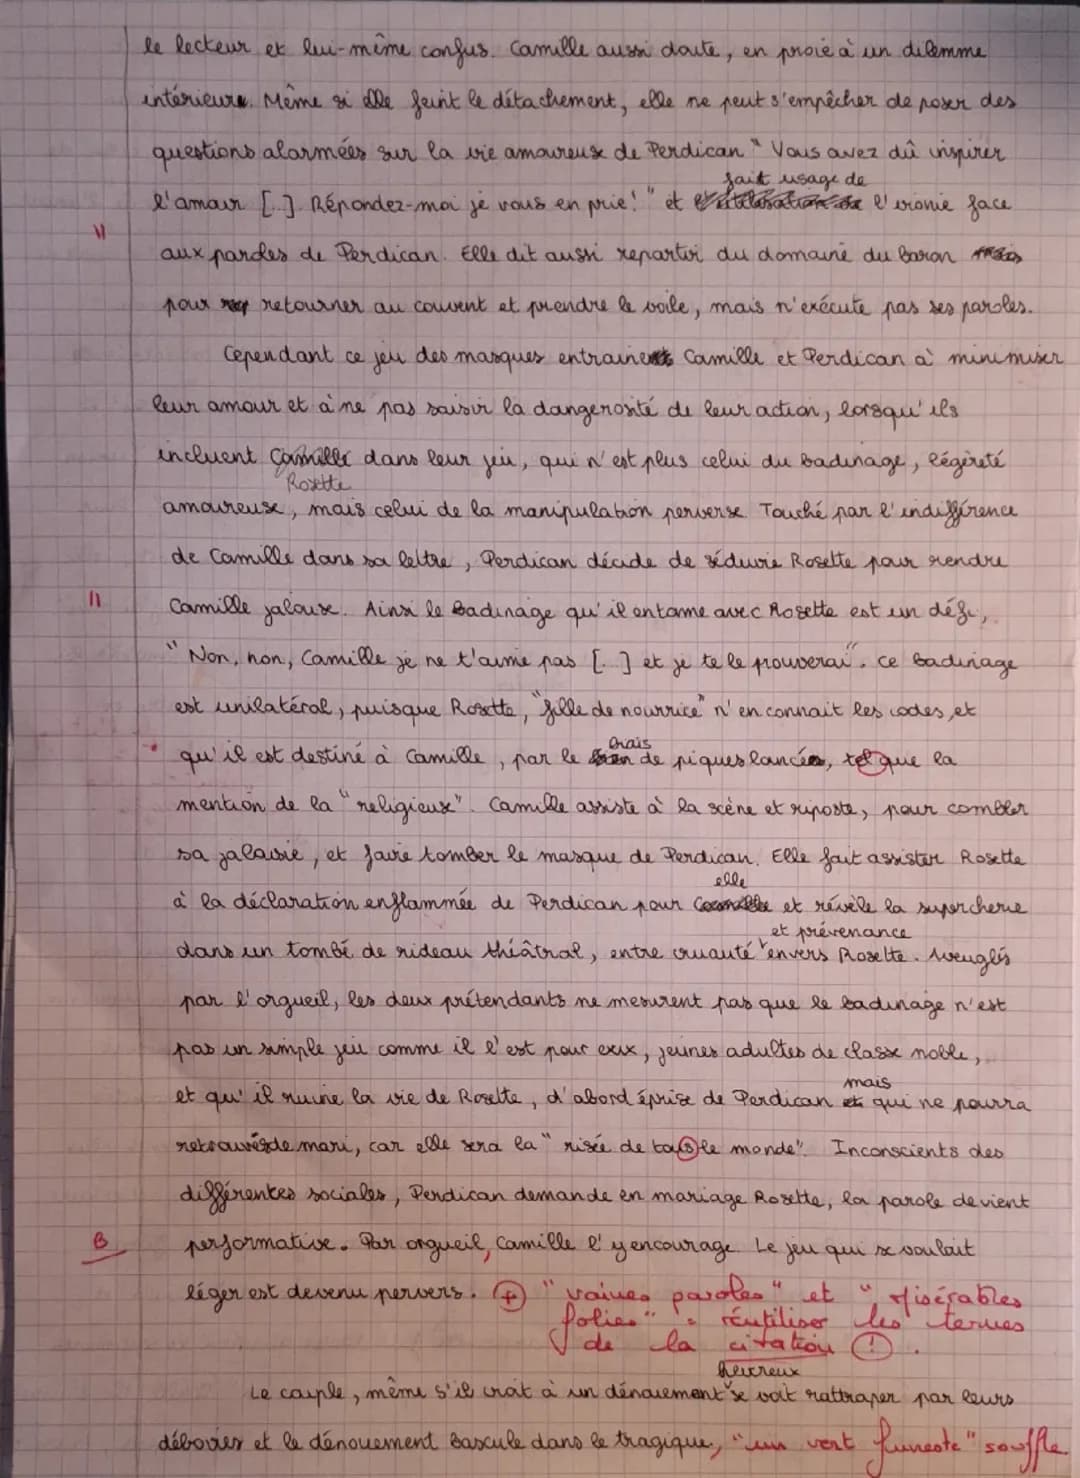 le lecteur et lui-même confus. Camille aussi doute, en proie à un dilemme
intérieure. Même si elle feint le détachement, elle ne peut s'empêcher de poser des
questions alarmées sur la vie amoureuse de Perdican " Vous avez dû inspirer
fait usage de
l'amour [..]. Répondez-moi je vous en prie! " et l'ironie face
11
aux paroles de Perdican. Elle dit aussi repartir du domaine du baron
pour retourner au couvent et prendre le voile, mais n'exécute pas ses paroles.
Cependant ce jeu des masques entraine Camille et Perdican à minimiser
leur amour et à ne pas saisir la dangerosité de leur action, lorsqu'ils
incluent Camille dans leur jeu, qui n'est plus celui du badinage, légèreté
Rosette
amoureuse, mais celui de la manipulation perverse. Touché par l'indifférence
de Camille dans sa lettre, Perdican décide de séduire Rosette pour rendre
11
Camille jalouse. Ainsi le Badinage qu'il entame avec Rosette est un défi,
" Non, non, Camille je ne t'aime pas [..] et je te le prouverai". Ce badinage
est unilatéral, puisque Rosette, "fille de nourrice" n'en connait les codes, et
biais
qu'il est destiné à Camille, par le de piques lancées, tel que la
mention de la "religieux". Camille assiste à la scène et riposte, pour combler
sa jalousie, et faire tomber le masque de Perdican. Elle fait assister Rosette
elle
à la déclaration enflammée de Perdican pour et révèle la supercherie
et prévenance
dans un tombé de rideau théâtral, entre cruauté envers Rosette. Aveuglés
par l'orgueil, les deux prétendants ne mesurent pas que le badinage n'est
pas un simple jeu comme il l'est pour eux, jeunes adultes de classe noble,
mais
et qu'il ruine la vie de Rosette, d'abord éprise de Perdican qui ne pourra
de mari, car elle sera la " risée de tous le monde". Inconscients des
différentes sociales, Perdican demande en mariage Rosette, la parole devient
B
performative. Par orgueil, Camille l'y encourage. Le jeu qui se voulait
léger est devenu pervers. + "vaines paroles" et "Misérables
folies" = réutiliser les termes
de la citation ! .
heureux
Le couple, même s'il croit à un dénouement se voit rattraper par leurs
déboires et le dénouement bascule dans le tragique, "un vent funeste" souffle